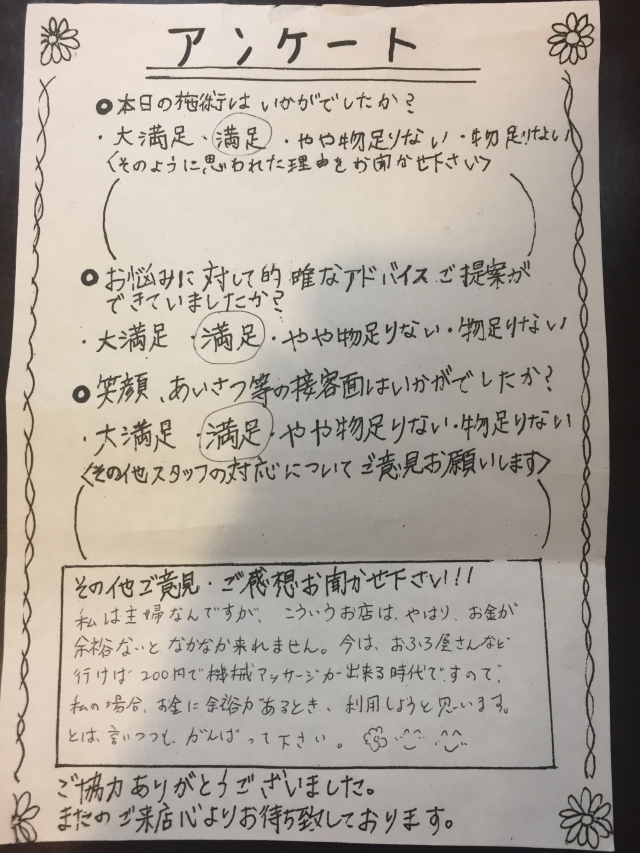 アンケート
本日の施術はいかがでしたか?
・大満足・満足・やや物足りない・物足りない
〈そのように思われた理由をお聞かせ下さい〉
お悩みに対して的確なアドバイスご提案が
できていましたか?
・大満足・満足・やや物足りない・物足りない
笑顔、あいさつ等の接客面はいかがでしたか?
・大満足・満足・やや物足りない・物足りない
〈その他スタッフの対応についてご意見お願いします〉
その他ご意見・ご感想お聞かせ下さい!!!
私は主婦なんですが、こういうお店は、やはり、お金が
余裕ないとなかなか来れません。今は、おふろ屋さんなど
行けば200円で機械マッサージが出来る時代ですので、
私の場合、お金に余裕があるとき、利用しようと思います。
とは、言いつつも、がんばって下さい。
ご協力ありがとうございました。
またのご来店心よりお待ち致しております。